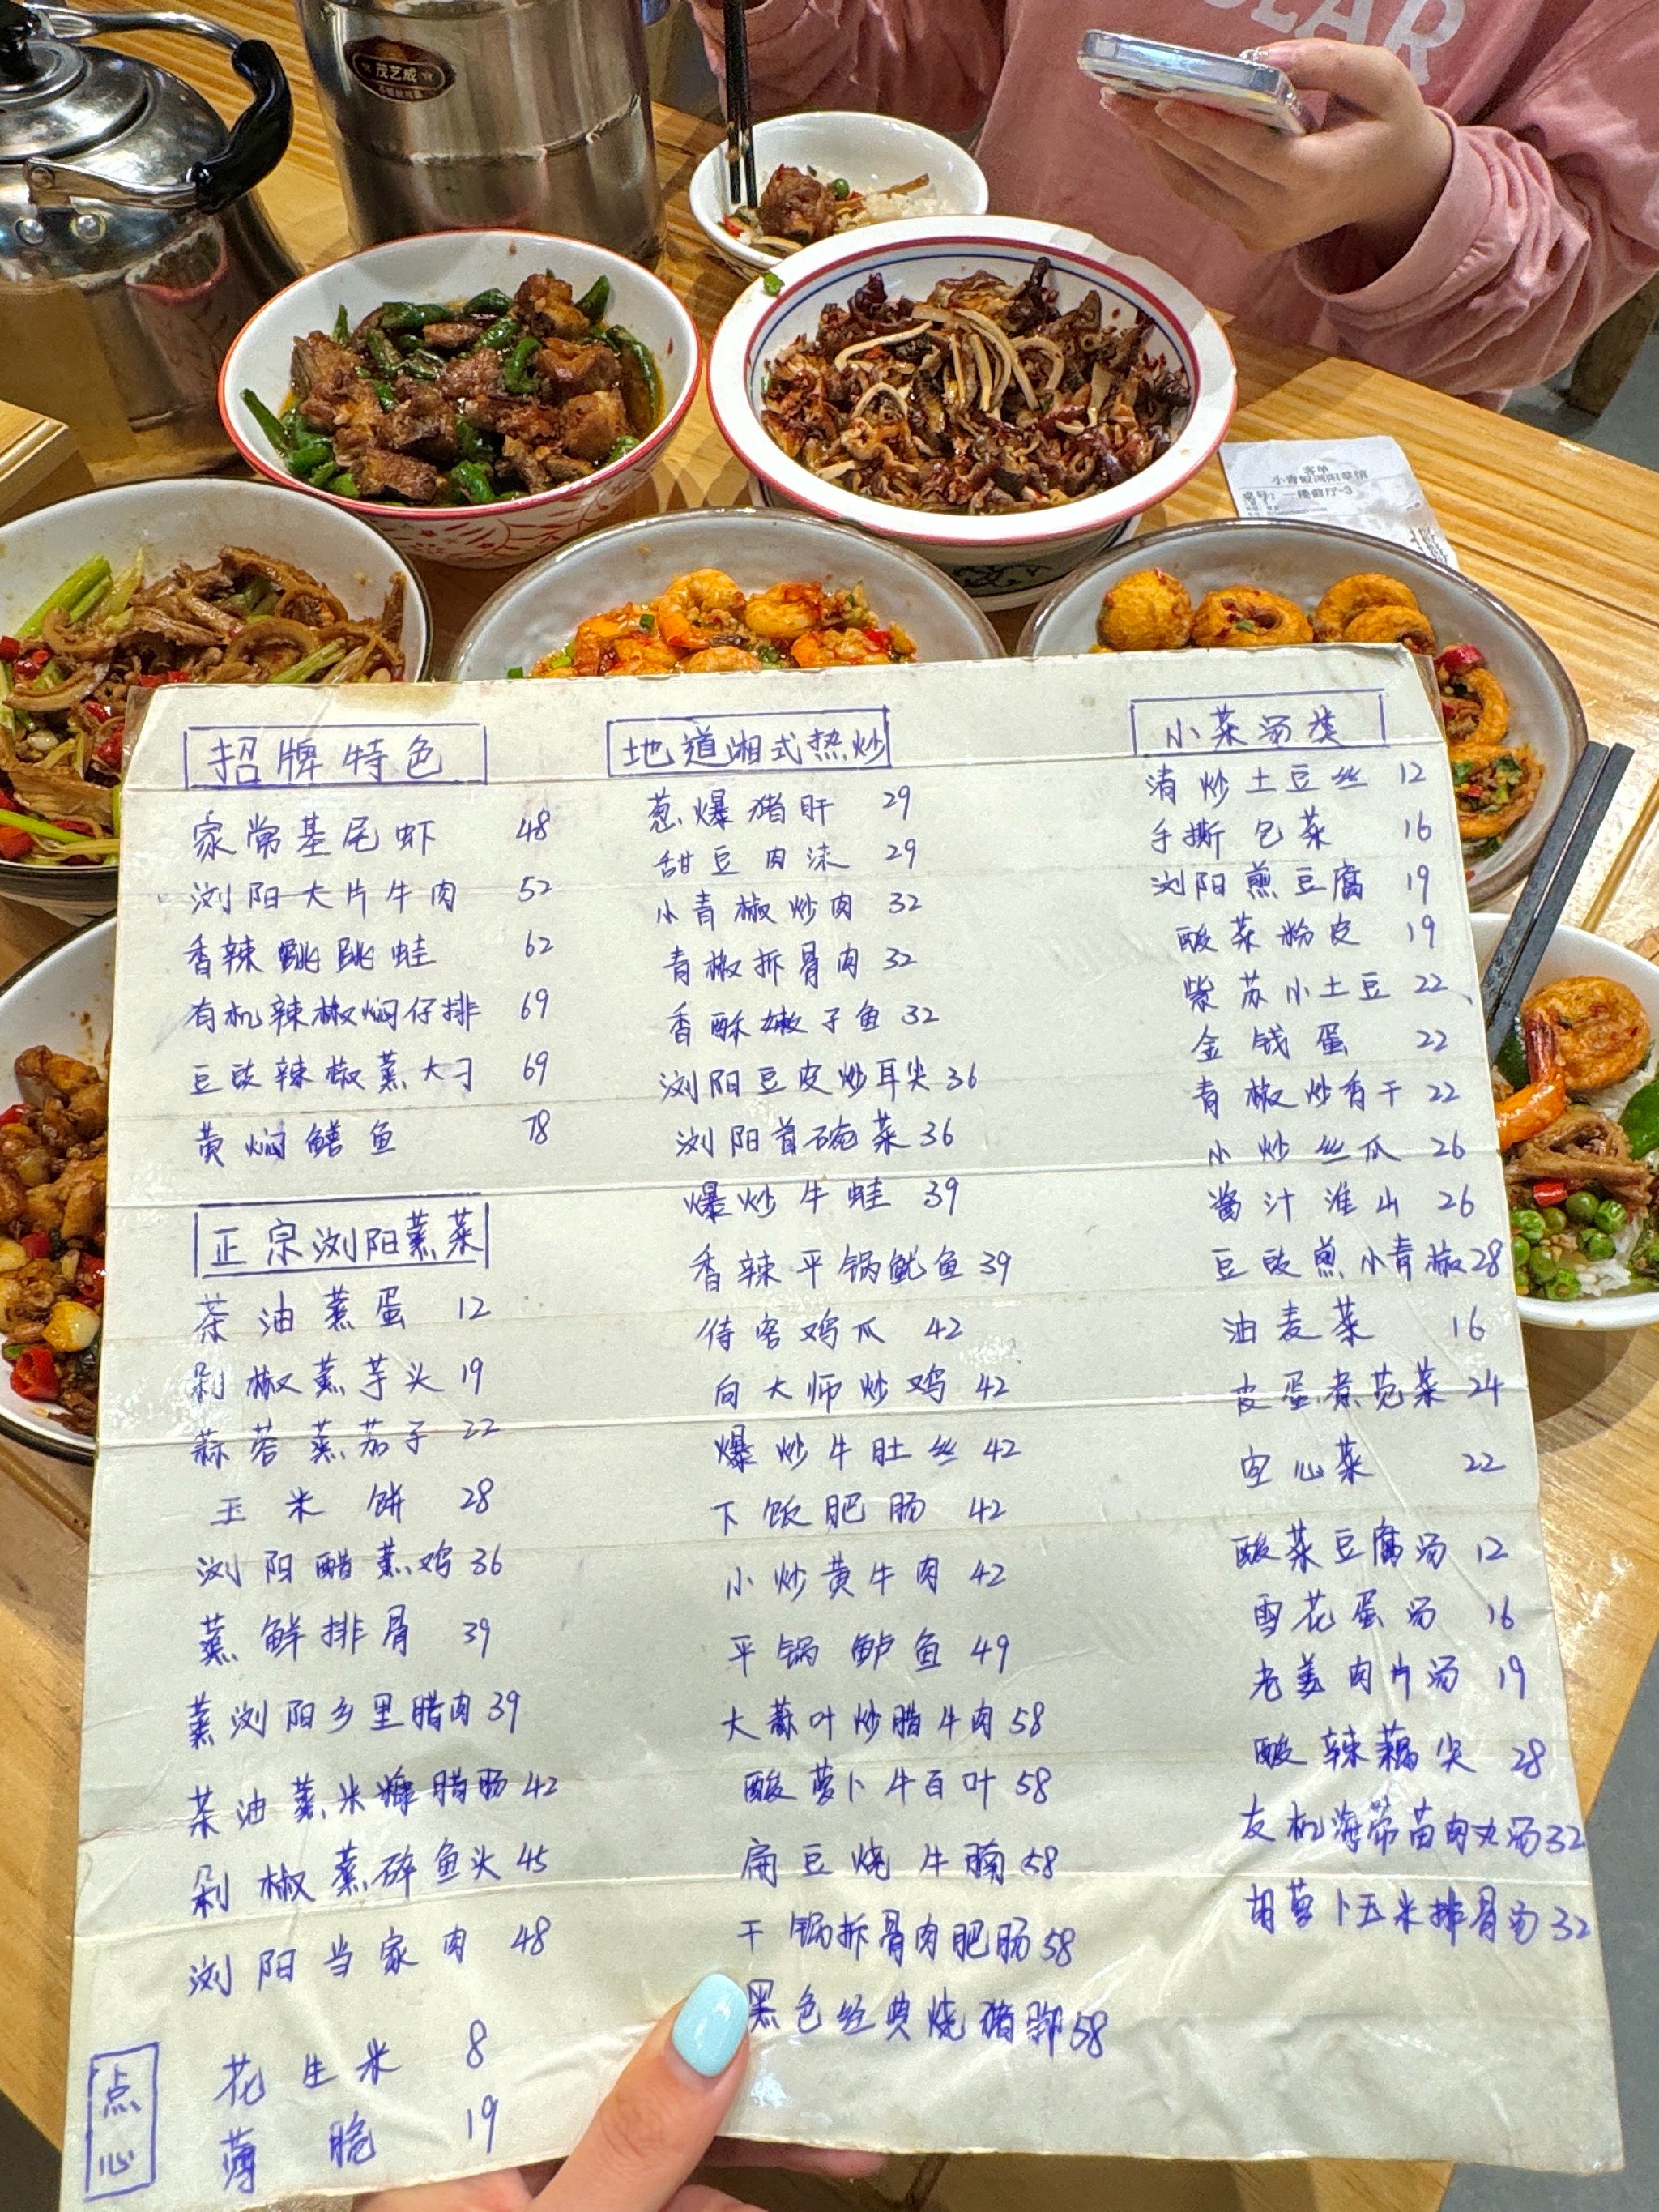 茂艺成
客单
小青椒浏阳草馆
桌号：一楼前厅-3
招牌特色
家常基尾虾 48
浏阳大片牛肉 52
香辣跳跳蛙 62
有机辣椒焖仔排 69
豆豉辣椒蒸大刁 69
黄焖鳝鱼 78
正宗浏阳蒸菜
茶油蒸蛋 12
剁椒蒸芋头 19
蒜蓉蒸茄子 22
玉米饼 28
浏阳醋蒸鸡 36
蒸鲜排骨 39
蒸浏阳乡里腊肉 39
茶油蒸米糠腊肠 42
剁椒蒸碎鱼头 45
浏阳当家肉 48
点心
花生米 8
薄脆 19
地道湘式热炒
葱爆猪肝 29
甜豆肉沫 29
小青椒炒肉 32
青椒拆骨肉 32
香酥嫩子鱼 32
浏阳豆皮炒耳尖 36
浏阳首碗菜 36
爆炒牛蛙 39
香辣平锅鱿鱼 39
待客鸡爪 42
向大师炒鸡 42
爆炒牛肚丝 42
下饭肥肠 42
小炒黄牛肉 42
平锅鲈鱼 49
大蒜叶炒腊牛肉 58
酸萝卜牛百叶 58
扁豆烧牛腩 58
干锅拆骨肉肥肠 58
黑色经典烧猪脚 58
小菜汤类
清炒土豆丝 12
手撕包菜 16
浏阳煎豆腐 19
酸菜粉皮 19
紫苏小土豆 22
金钱蛋 22
青椒炒香干 22
小炒丝瓜 26
酱汁淮山 26
豆豉煎小青椒 28
油麦菜 16
皮蛋煮苋菜 24
空心菜 22
酸菜豆腐汤 12
雪花蛋汤 16
老姜肉片汤 19
酸辣藕尖 28
友机海带苗肉丸汤 32
胡萝卜玉米排骨汤 32